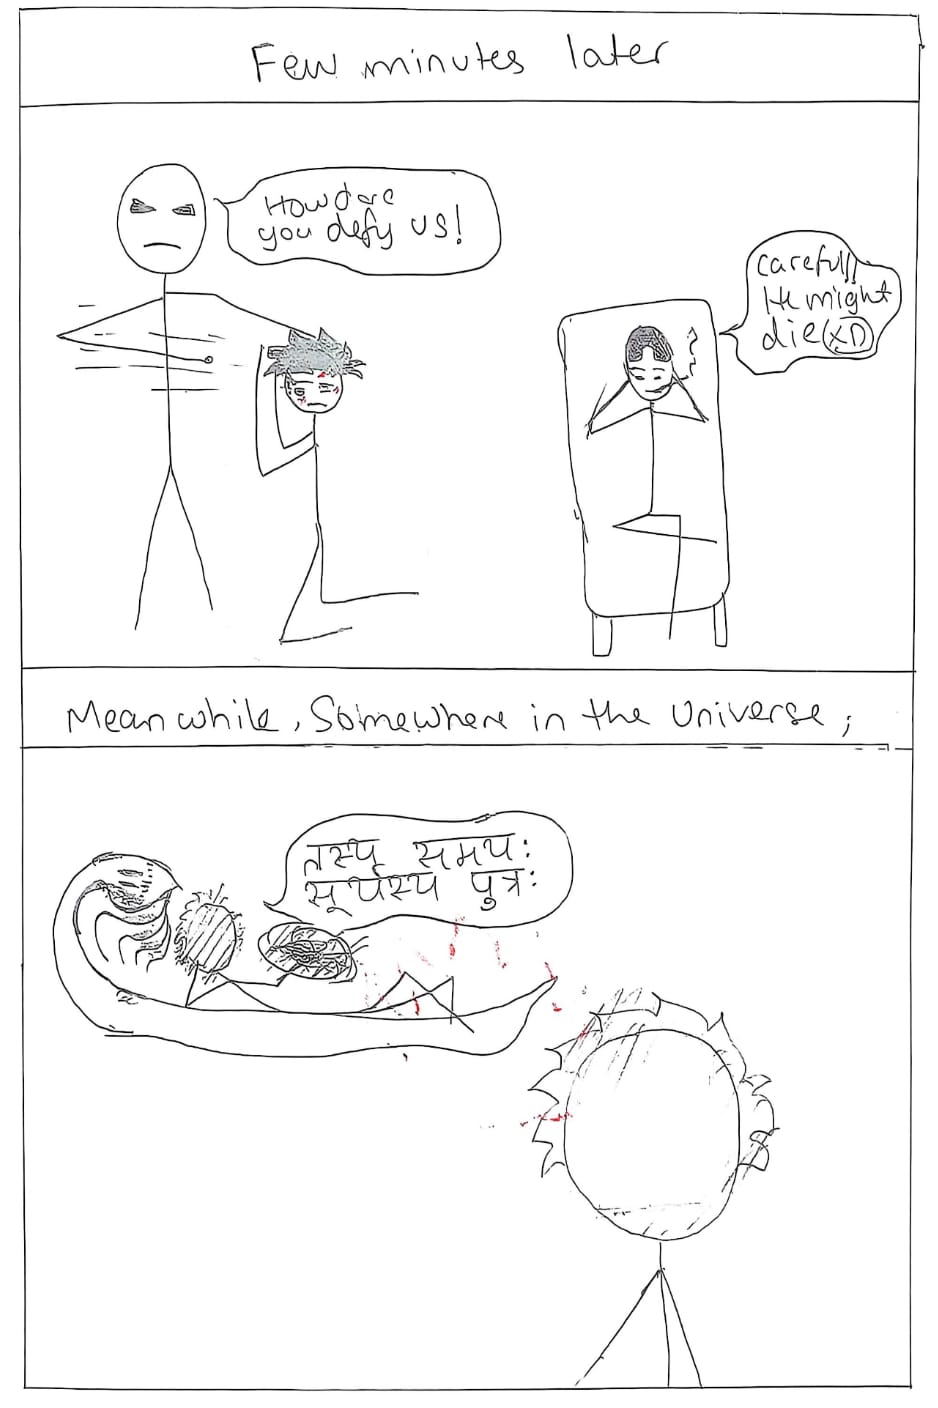 Few minutes later
How dare
you defy us!
Careful!!
He might
die (XD)
Meanwhile, Somewhere in the Universe;
तस्य समयः
सूर्यस्य पुत्रः